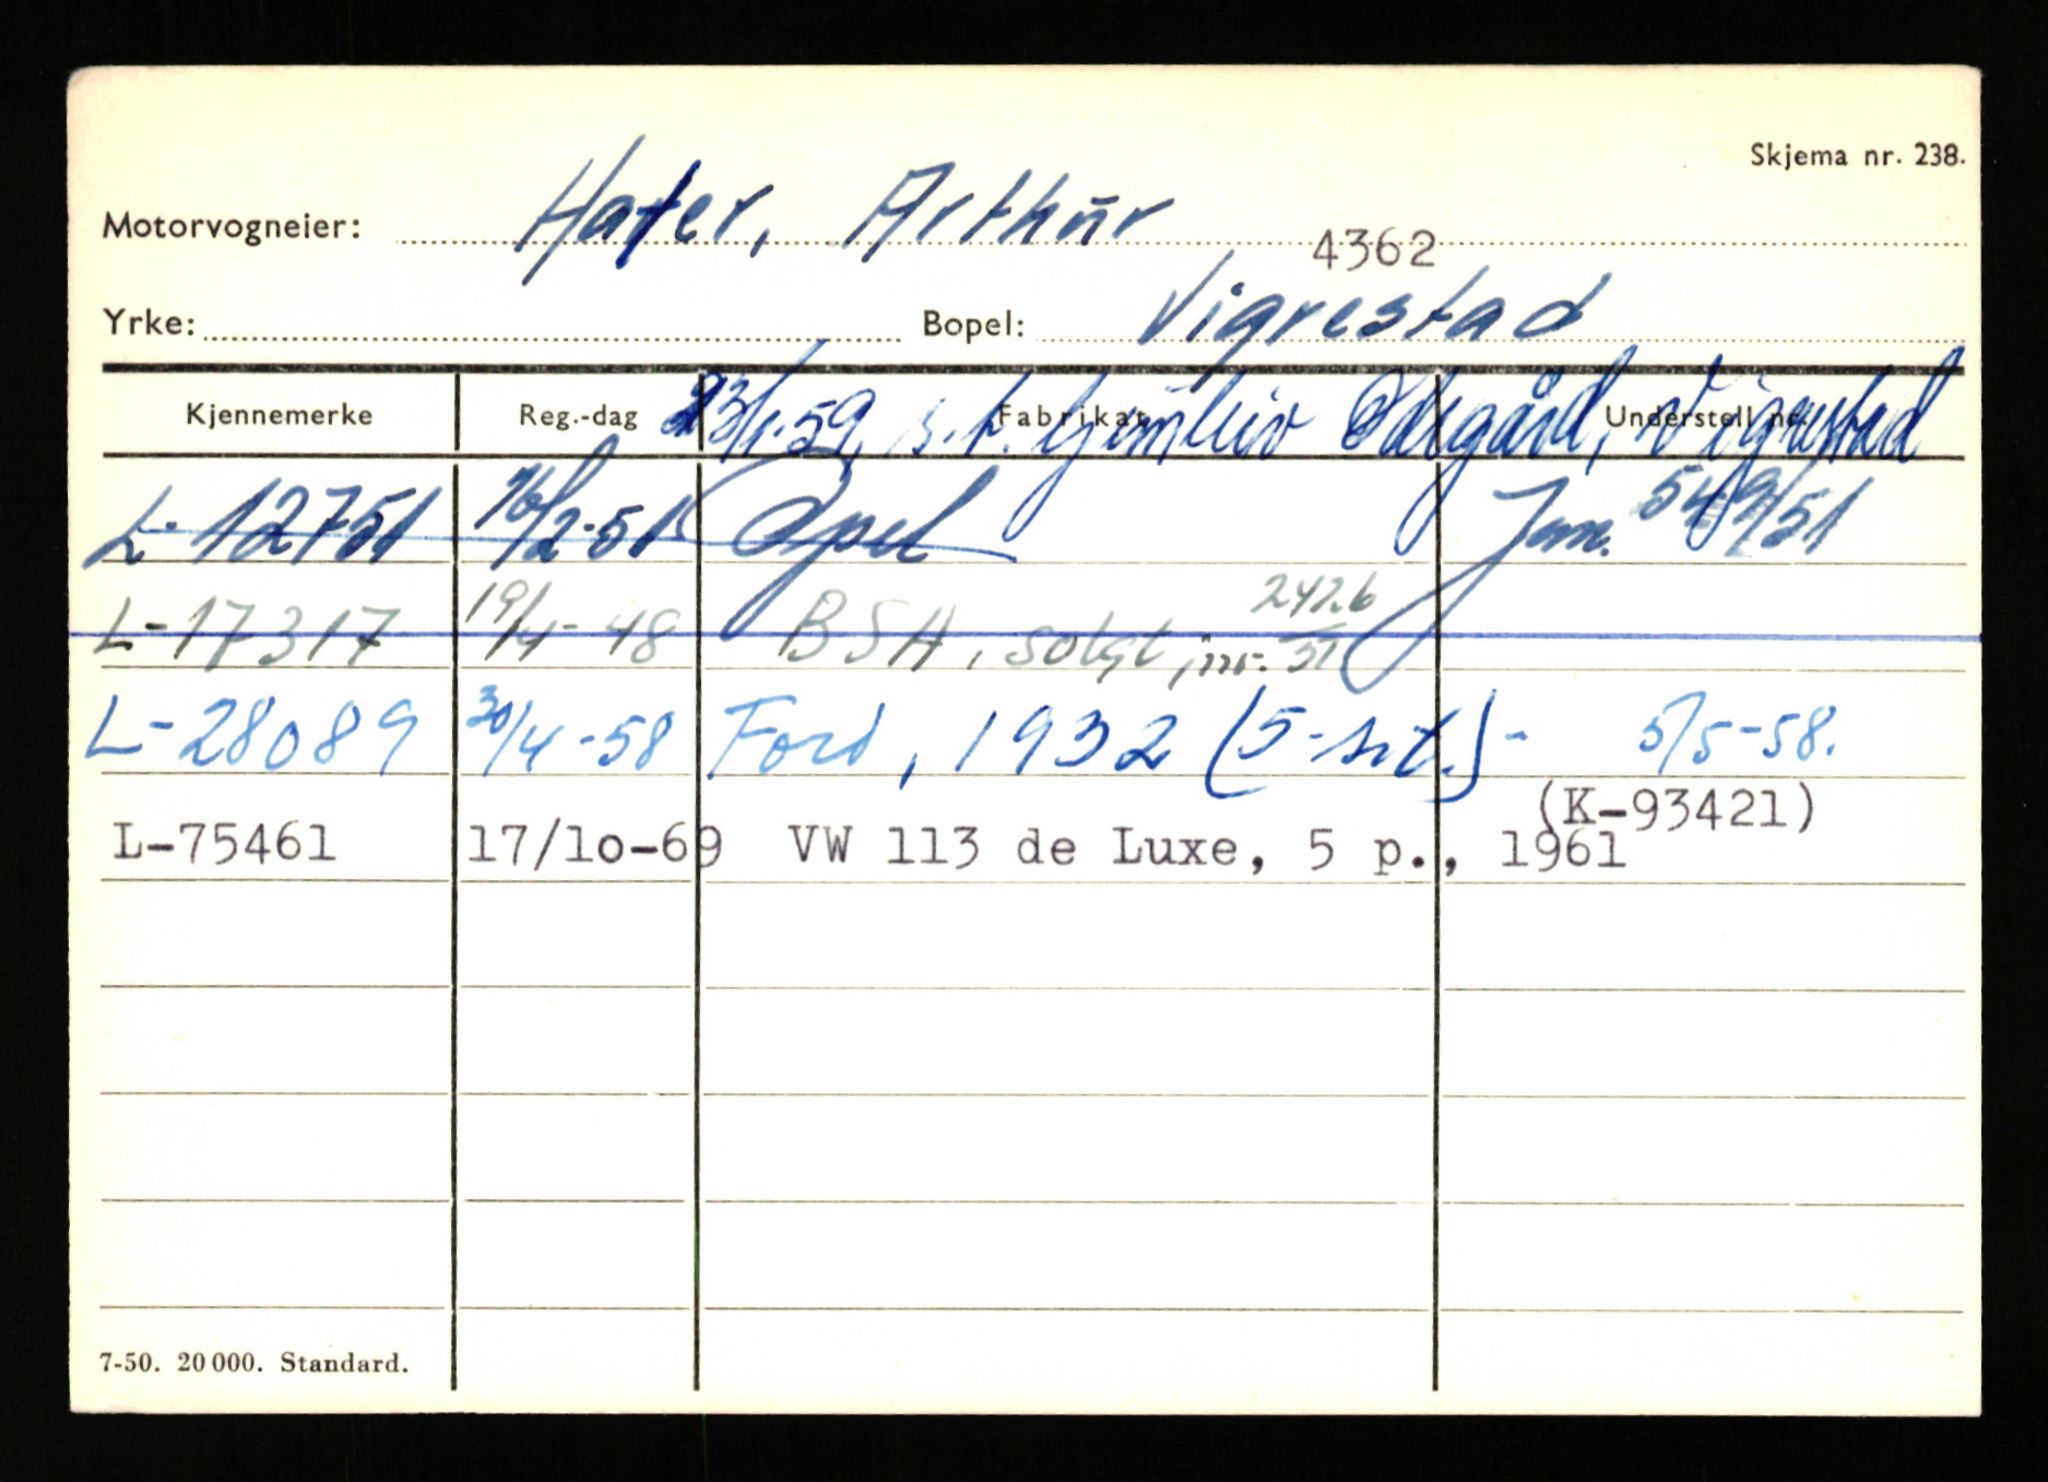 Skjema nr. 238.
Motorvogneier: Hafer, Arthur
4362
Yrke: Bopel: Vigrestad
23/1.59 s.t. Ødegård, Vigrestad
Kjennemerke Reg.-dag Fabrikat Understell nr.
L-12751 16/2-51 Opel Jan. 549/51
L-17317 19/4-48 BSA, solgt, nr. 247.6/51
L-28089 30/4-58 Ford, 1932 (5-sit.) - 5/5-58.
(K-93421)
L-75461 17/10-69 VW 113 de Luxe, 5 p., 1961
7-50. 20 000. Standard.